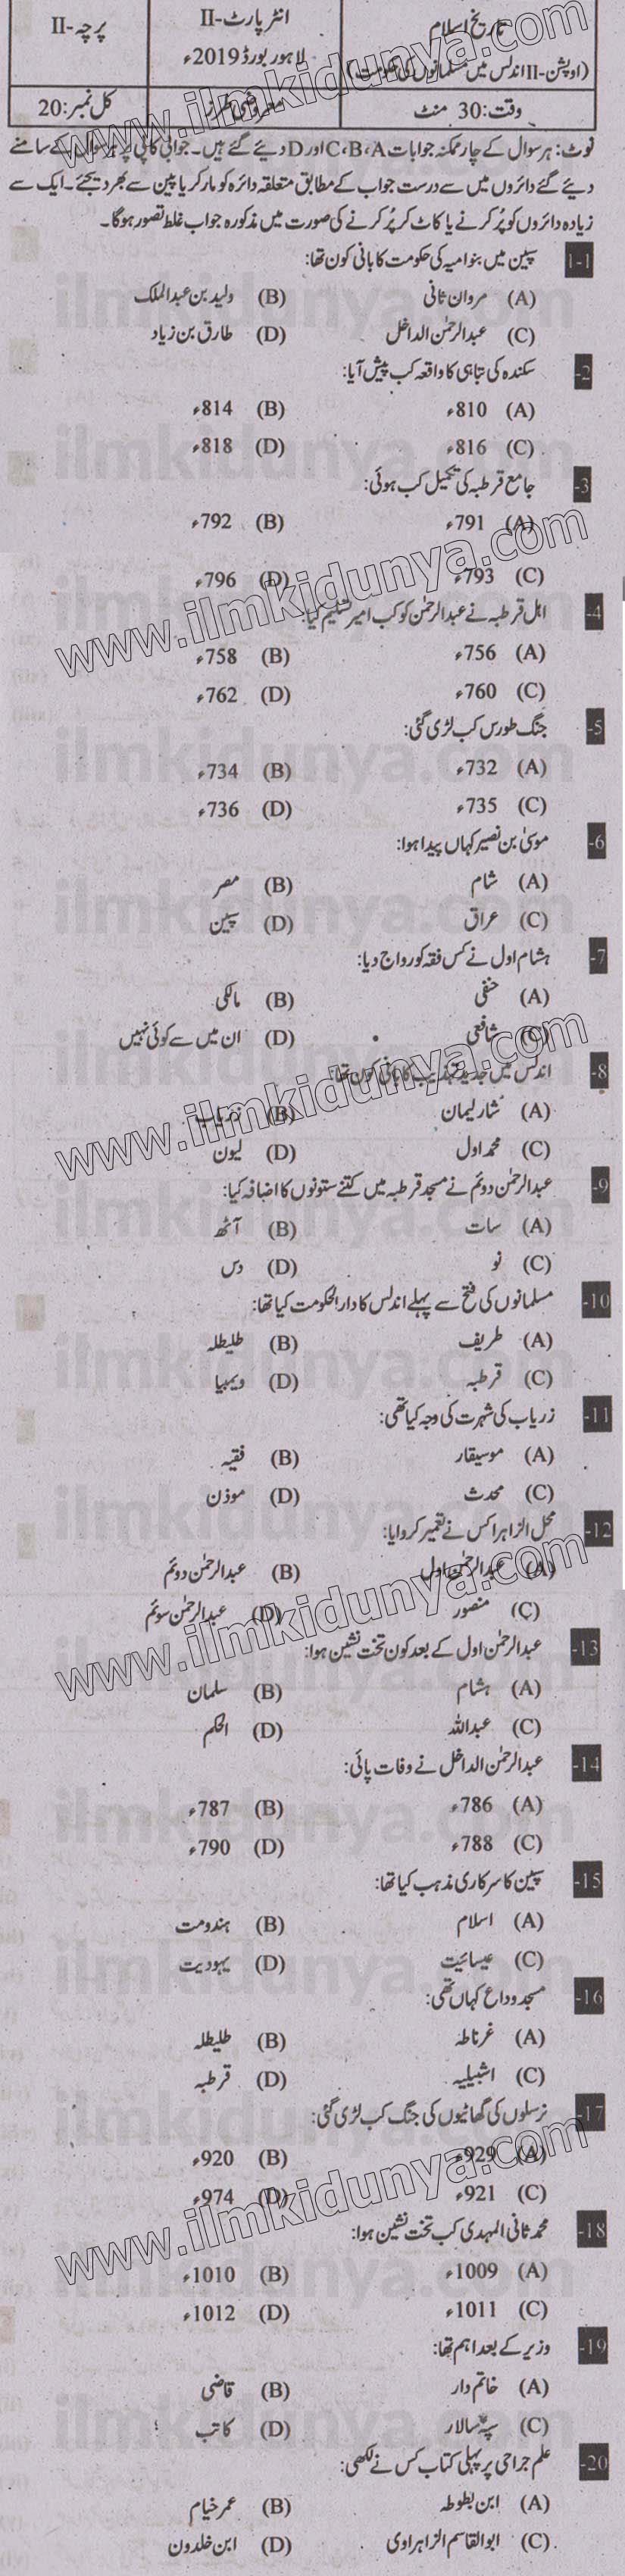 تاریخ اسلام
(اوپشن-II اندلس میں مسلمانوں کی حکومت)
انٹر پارٹ-II
لاہور بورڈ 2019ء
پرچہ-II
وقت: 30 منٹ
معروضی طرز
کل نمبر: 20
نوٹ: ہر سوال کے چار ممکنہ جوابات A، B، C اور D دیئے گئے ہیں۔ جوابی کاپی پر ہر سوال کے سامنے
دیئے گئے دائروں میں سے درست جواب کے مطابق متعلقہ دائرہ کو مارکر یا پین سے بھر دیجئے۔ ایک سے
زیادہ دائروں کو پُر کرنے یا کاٹ کر پُر کرنے کی صورت میں مذکورہ جواب غلط تصور ہوگا۔
1-1 سپین میں بنوامیہ کی حکومت کا بانی کون تھا:
(A) مروان ثانی (B) ولید بن عبدالملک
(C) عبدالرحمٰن الداخل (D) طارق بن زیاد
2- سکندہ کی تباہی کا واقعہ کب پیش آیا:
(A) 810ء (B) 814ء
(C) 816ء (D) 818ء
3- جامع قرطبہ کی تکمیل کب ہوئی:
(A) 791ء (B) 792ء
(C) 793ء (D) 796ء
4- اہل قرطبہ نے عبدالرحمٰن کو کب امیر تسلیم کیا:
(A) 756ء (B) 758ء
(C) 760ء (D) 762ء
5- جنگ طورس کب لڑی گئی:
(A) 732ء (B) 734ء
(C) 735ء (D) 736ء
6- موسیٰ بن نصیر کہاں پیدا ہوا:
(A) شام (B) مصر
(C) عراق (D) سپین
7- ہشام اول نے کس فقہ کو رواج دیا:
(A) حنفی (B) مالکی
(C) شافعی (D) ان میں سے کوئی نہیں
8- اندلس میں جدید تہذیب کا بانی کون تھا:
(A) شارلیمان (B) زریاب
(C) محمد اول (D) لیون
9- عبدالرحمٰن دوئم نے مسجد قرطبہ میں کتنے ستونوں کا اضافہ کیا:
(A) سات (B) آٹھ
(C) نو (D) دس
10- مسلمانوں کی فتح سے پہلے اندلس کا دارالحکومت کیا تھا:
(A) طریف (B) طلیطلہ
(C) قرطبہ (D) ویمبیا
11- زریاب کی شہرت کی وجہ کیا تھی:
(A) موسیقار (B) فقیہ
(C) محدث (D) موذن
12- محل الزاہرا کس نے تعمیر کروایا:
(A) عبدالرحمٰن اول (B) عبدالرحمٰن دوئم
(C) منصور (D) عبدالرحمٰن سوئم
13- عبدالرحمٰن اول کے بعد کون تخت نشین ہوا:
(A) ہشام (B) سلمان
(C) عبداللہ (D) الحکم
14- عبدالرحمٰن الداخل نے وفات پائی:
(A) 786ء (B) 787ء
(C) 788ء (D) 790ء
15- سپین کا سرکاری مذہب کیا تھا:
(A) اسلام (B) ہندومت
(C) عیسائیت (D) یہودیت
16- مسجد وداع کہاں تھی:
(A) غرناطہ (B) طلیطلہ
(C) اشبیلیہ (D) قرطبہ
17- نرسلوں کی گھاٹیوں کی جنگ کب لڑی گئی:
(A) 929ء (B) 920ء
(C) 921ء (D) 974ء
18- محمد ثانی المہدی کب تخت نشین ہوا:
(A) 1009ء (B) 1010ء
(C) 1011ء (D) 1012ء
19- وزیر کے بعد اہم تھا:
(A) خاتم دار (B) قاضی
(C) سپہ سالار (D) کاتب
20- علم جراحی پر پہلی کتاب کس نے لکھی:
(A) ابن بطوطہ (B) عمر خیام
(C) ابوالقاسم الزاہراوی (D) ابن خلدون
www.ilmkidunya.com
www.ilmkidunya.com
www.ilmkidunya.com
www.ilmkidunya.com
www.ilmkidunya.com